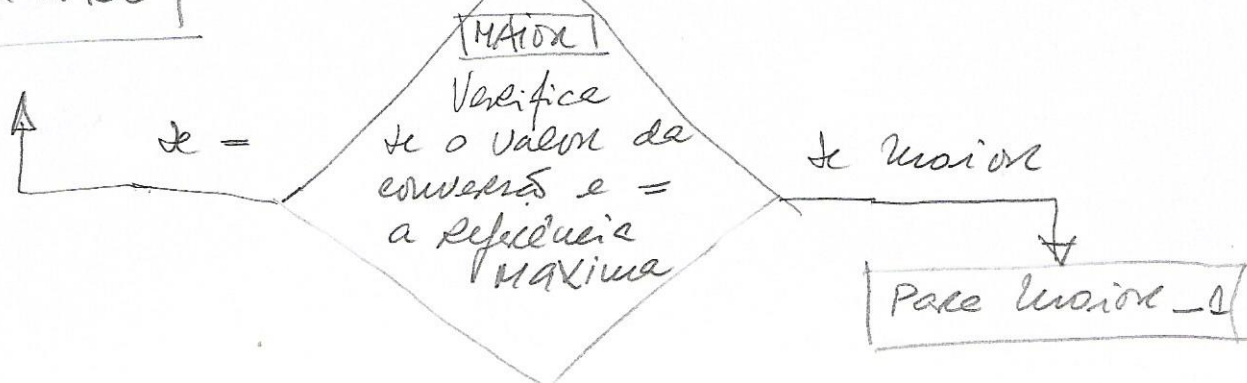 MAIOR
Verifica
se o valor da
conversão e =
a referência
máxima
se =
se maior
Para maior_1